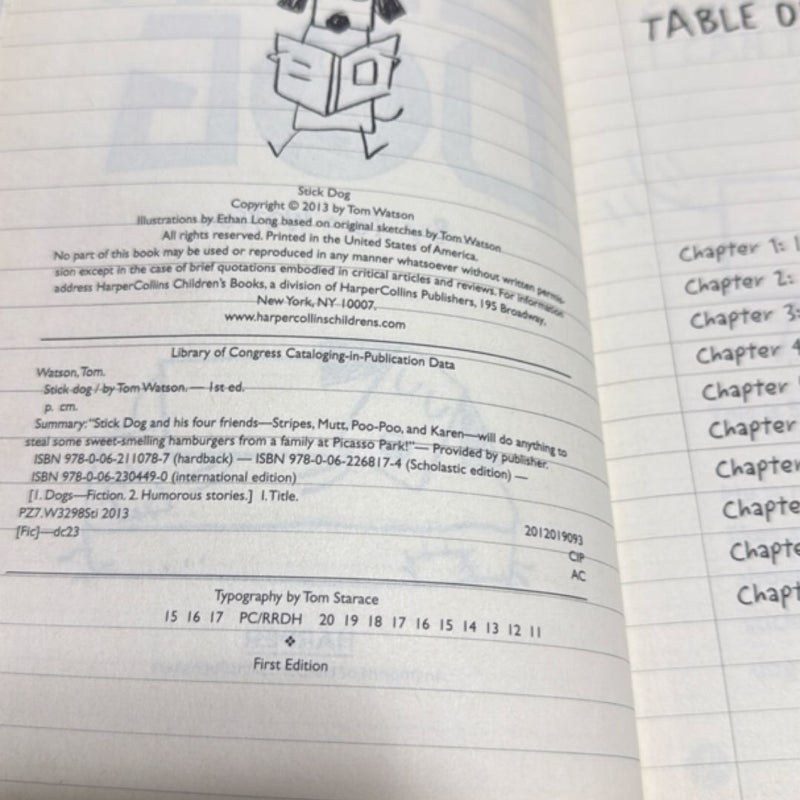 Stick Dog
Copyright © 2013 by Tom Watson
Illustrations by Ethan Long based on original sketches by Tom Watson
All rights reserved. Printed in the United States of America.
No part of this book may be used or reproduced in any manner whatsoever without written permis-
sion except in the case of brief quotations embodied in critical articles and reviews. For information
address HarperCollins Children's Books, a division of HarperCollins Publishers, 195 Broadway,
New York, NY 10007.
www.harpercollinschildrens.com
Library of Congress Cataloging-in-Publication Data
Watson, Tom.
Stick dog / by Tom Watson. — 1st ed.
p. cm.
Summary: "Stick Dog and his four friends—Stripes, Mutt, Poo-Poo, and Karen—will do anything to
steal some sweet-smelling hamburgers from a family at Picasso Park!"— Provided by publisher.
ISBN 978-0-06-211078-7 (hardback) — ISBN 978-0-06-226817-4 (Scholastic edition) —
ISBN 978-0-06-230449-0 (international edition)
[1. Dogs—Fiction. 2. Humorous stories.] I. Title.
PZ7.W3298Sti 2013
[Fic]—dc23
2012019093
CIP
AC
Typography by Tom Starace
15 16 17 PC/RRDH 20 19 18 17 16 15 14 13 12 11
❖
First Edition
TABLE O
Chapter 1:
Chapter 2:
Chapter 3:
Chapter 4
Chapter
Chapter
Chapter
Chapte
Chapte
Chapt